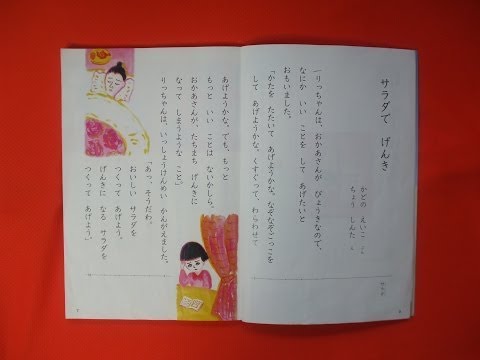 サラダで げんき
かどの えいこ さく
ちょう しんた え
りっちゃんは、おかあさんが びょうきなので、
なにか いい ことを して あげたいと
おもいました。
「かたを たたいて あげようかな。なぞなぞごっこを
して あげようかな。くすぐって、わらわせて
あげようかな。でも、もっと
もっと いい ことは ないかしら。
おかあさんが、たちまち げんきに
なって しまうような こと。」
りっちゃんは、いっしょうけんめい かんがえました。
「あっ、そうだわ。
おいしい サラダを
つくって あげよう。
げんきに なる サラダを
つくって あげよう。」
7